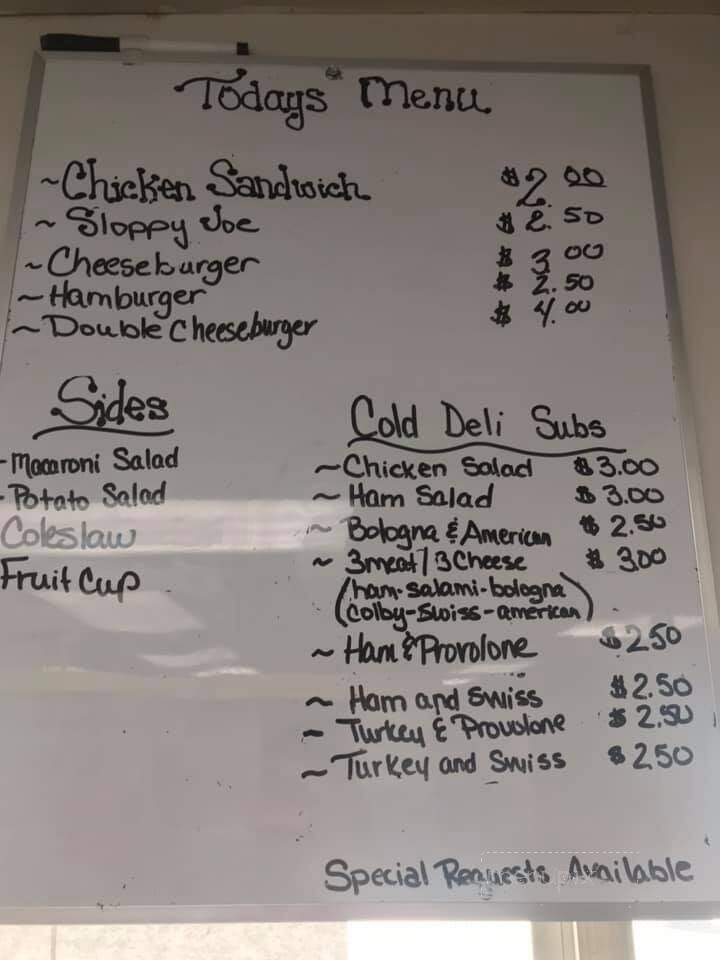 Todays Menu
~Chicken Sandwich $2.00
~Sloppy Joe $2.50
~Cheeseburger $3.00
~Hamburger $2.50
~Double Cheeseburger $4.00
Sides
-Macaroni Salad
-Potato Salad
Coleslaw
Fruit Cup
Cold Deli Subs
~Chicken Salad $3.00
~Ham Salad $3.00
~Bologna & American $2.50
~3meat/3Cheese $3.00
(ham-salami-bologna
colby-Swiss-american)
~Ham & Provolone $2.50
~Ham and Swiss $2.50
~Turkey & Provolone $2.50
~Turkey and Swiss $2.50
Special Requests Available